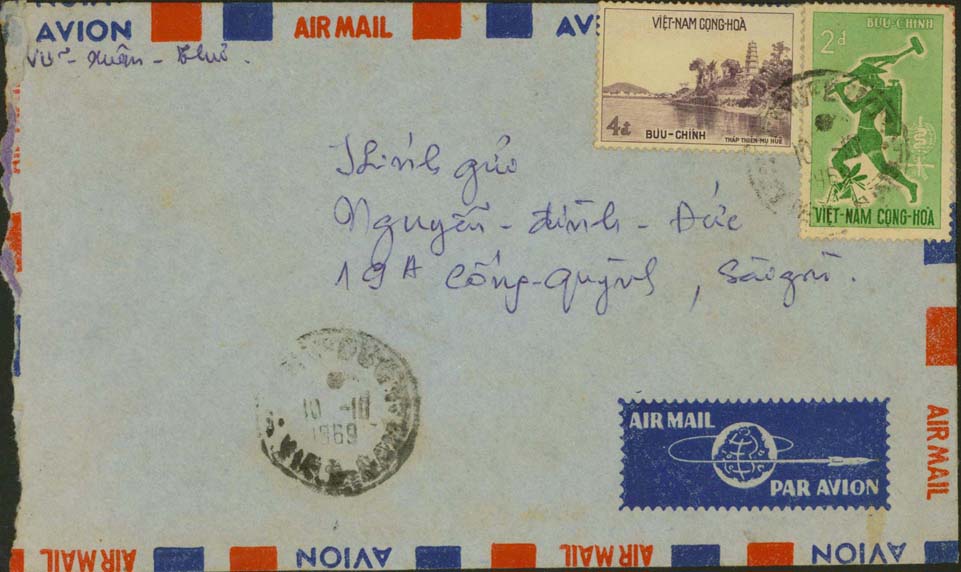 AVION
AIR MAIL
AVION
Vũ - Xuân - Thu
VIỆT-NAM CỘNG-HÒA
4đ
BƯU-CHÍNH
THÁP THIÊN-MỤ HUẾ
BƯU-CHÍNH
2đ
VIỆT-NAM CỘNG-HÒA
Kính gửi
Nguyễn - đình - Đức
19A Cống-Quỳnh, Sàigòn.
10 - 10
1969
VIỆT-NAM
AIR MAIL
PAR AVION
AIR MAIL
AIR MAIL
AVION
AIR MAIL
AVION